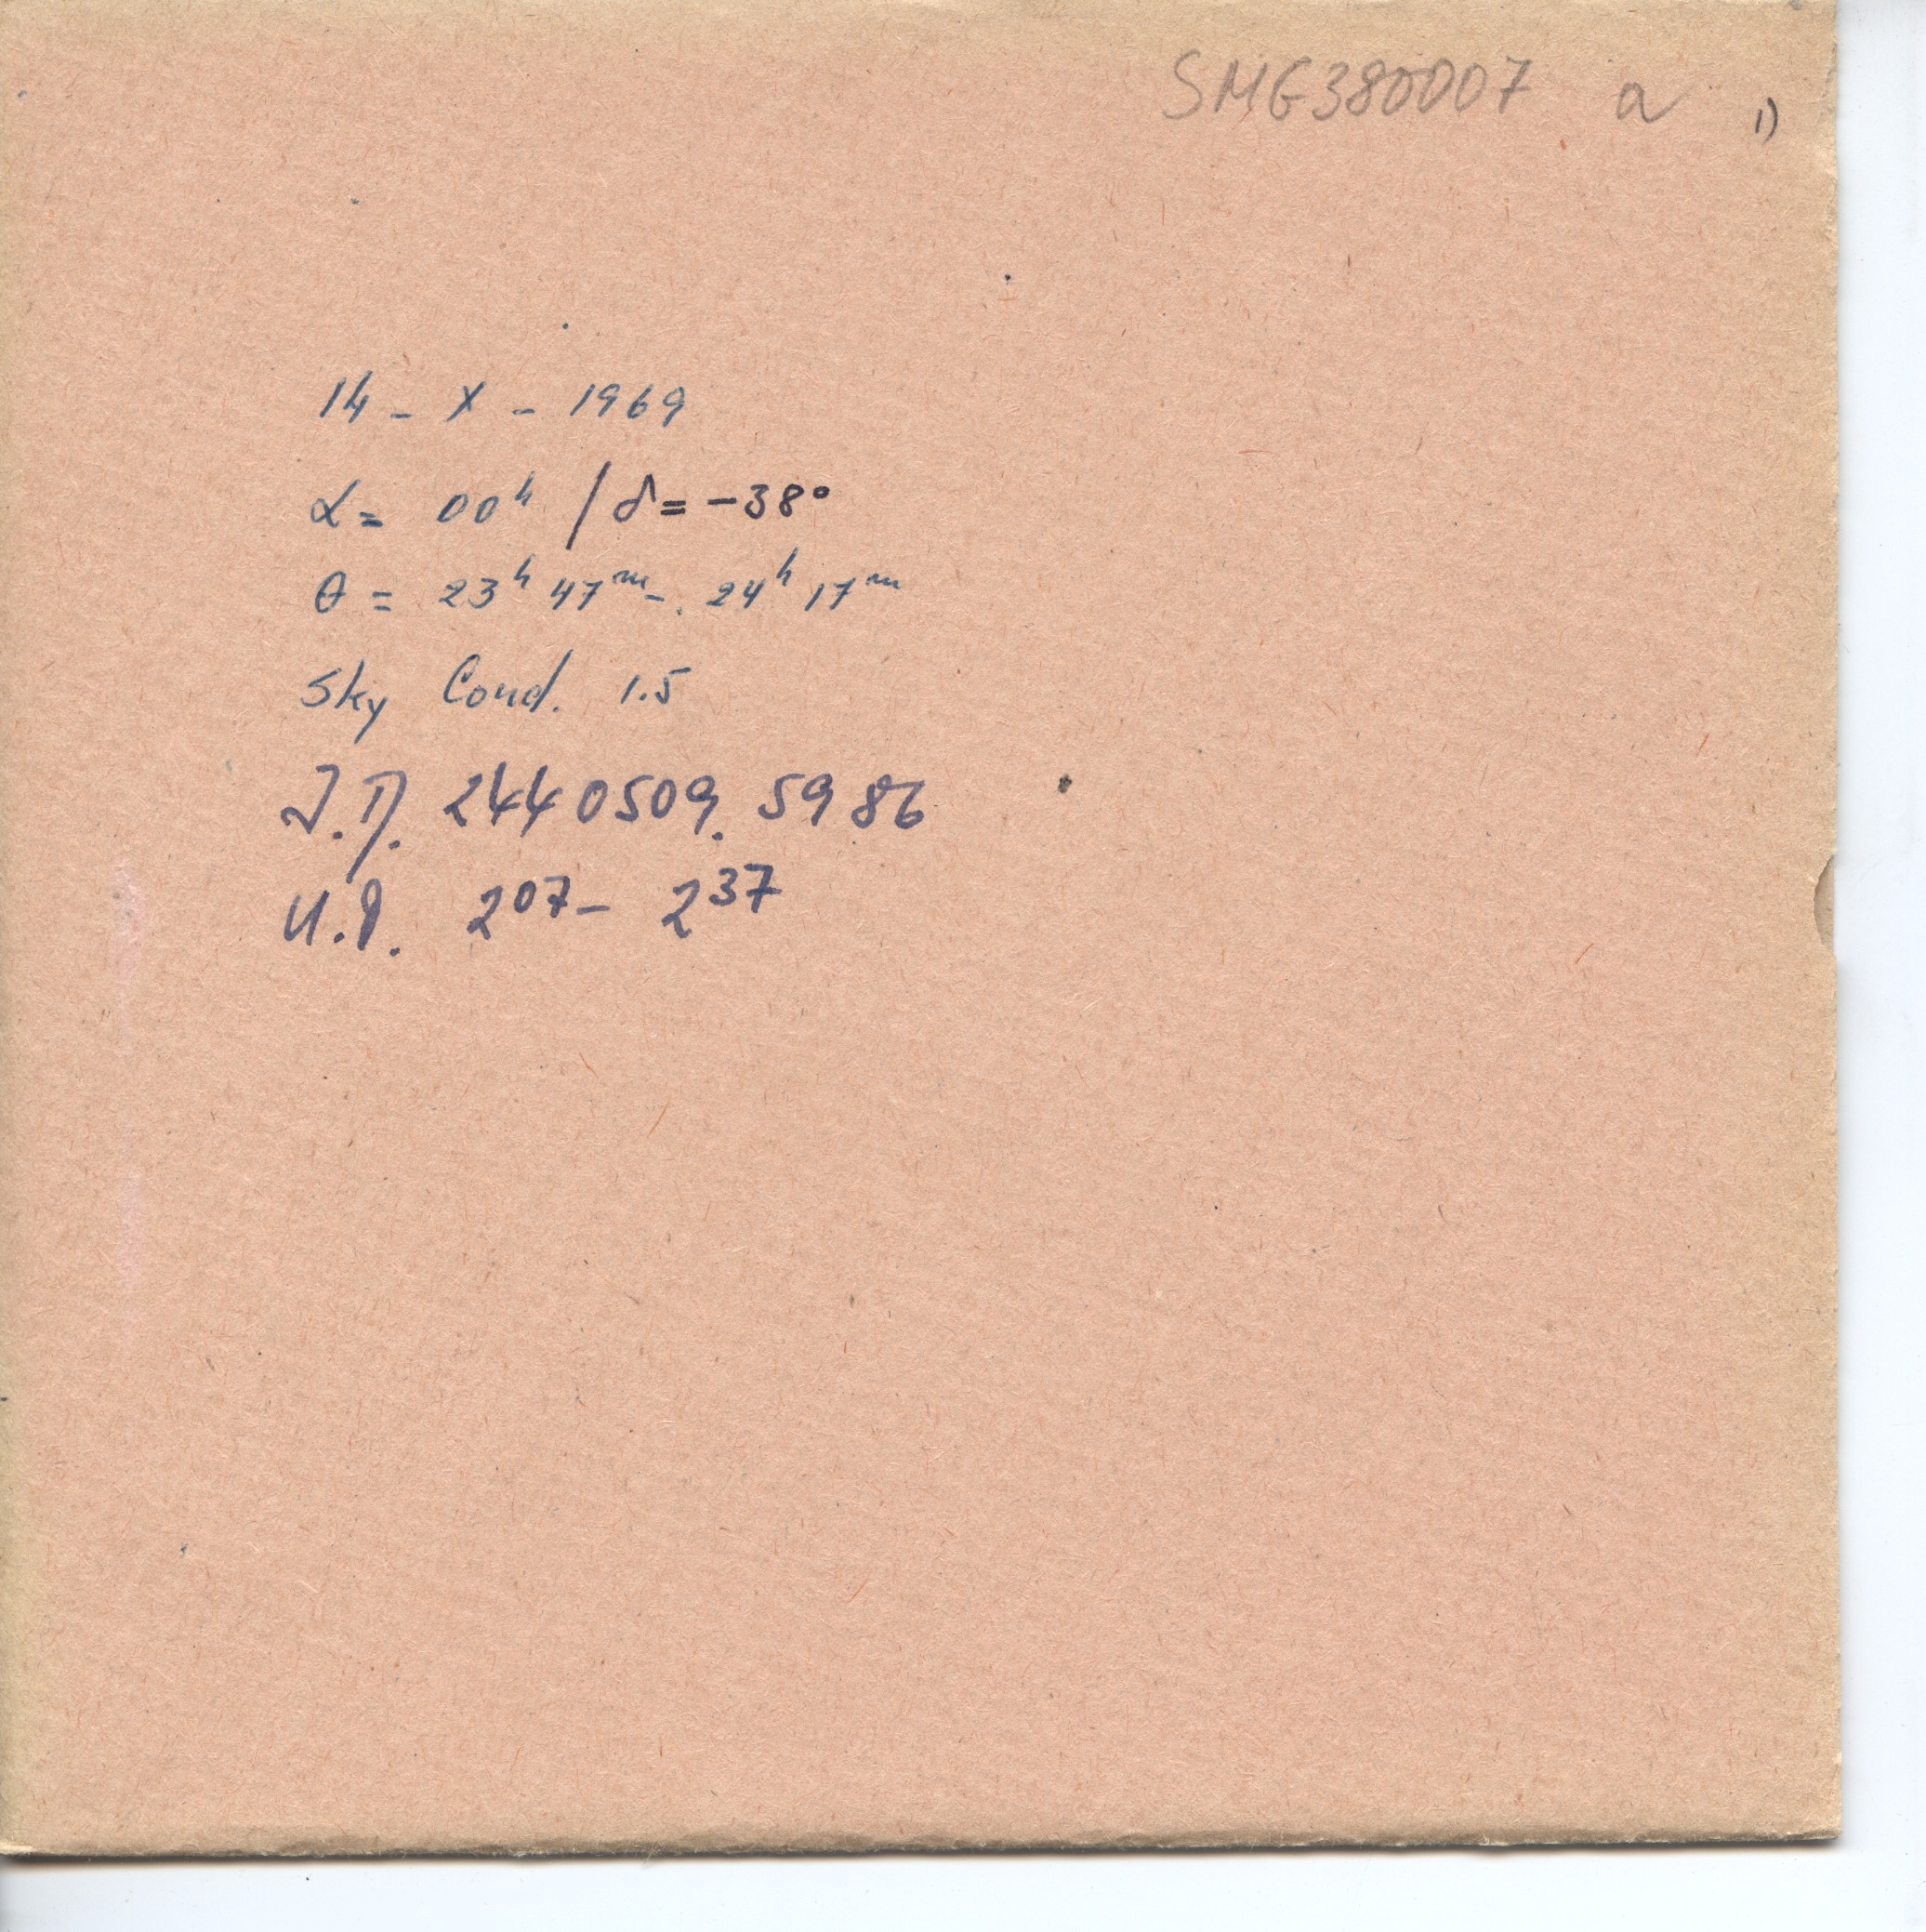 SMG380007 a 1)
14 - X - 1969
α = 00ʰ / δ = -38°
θ = 23ʰ 47ᵐ -. 24ʰ 17ᵐ
Sky Cond. 1.5
J.D. 2440509.5986
U.T. 2⁰⁷ - 2³⁷